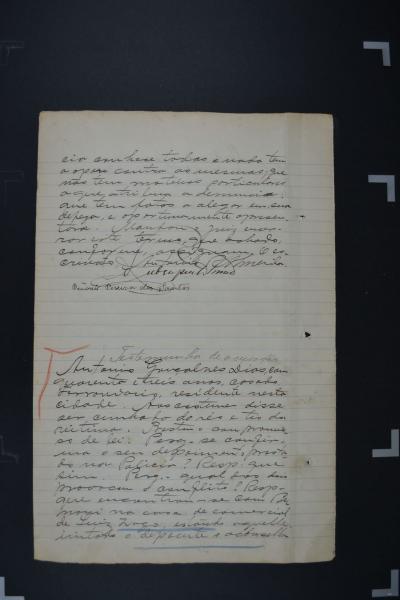 cio conhece todas e nada tem
a oppor contra as mesmas, que
não tem motivos particulares
a que attribua a denuncia;
que tem factos a allegar em sua
defeza, e opportunamente apresen-
tará. Mandou o juiz encer-
rar este termo, que achado
conforme, assignam. E es-
crivão,
Benedito Pereira dos Santos
Testemunha de accusação
Antonio Gonçalves Dias, com
quarenta e treis anos, casado
ferroviario, residente nesta
cidade. Aos costumes disse
ser cunhado do réo e tio da
victima. Prestou o compromis-
so de lei. Perg. se confir-
ma o seu depoimento, presta-
do na Policia? Resp. que
sim. Perg. qual a
provocou o conflicto? Resp.
que encontrou-se com
na casa de comercial
de Luiz estando aquelle
o depoente o aconselh